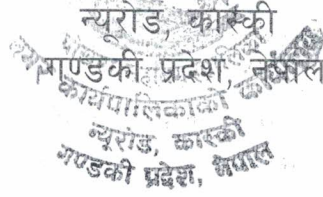 न्यूरोड, कास्की
गण्डकी प्रदेश, नेपाल
कार्यपालिकाको
न्यूरोड, कास्की
गण्डकी प्रदेश, नेपाल